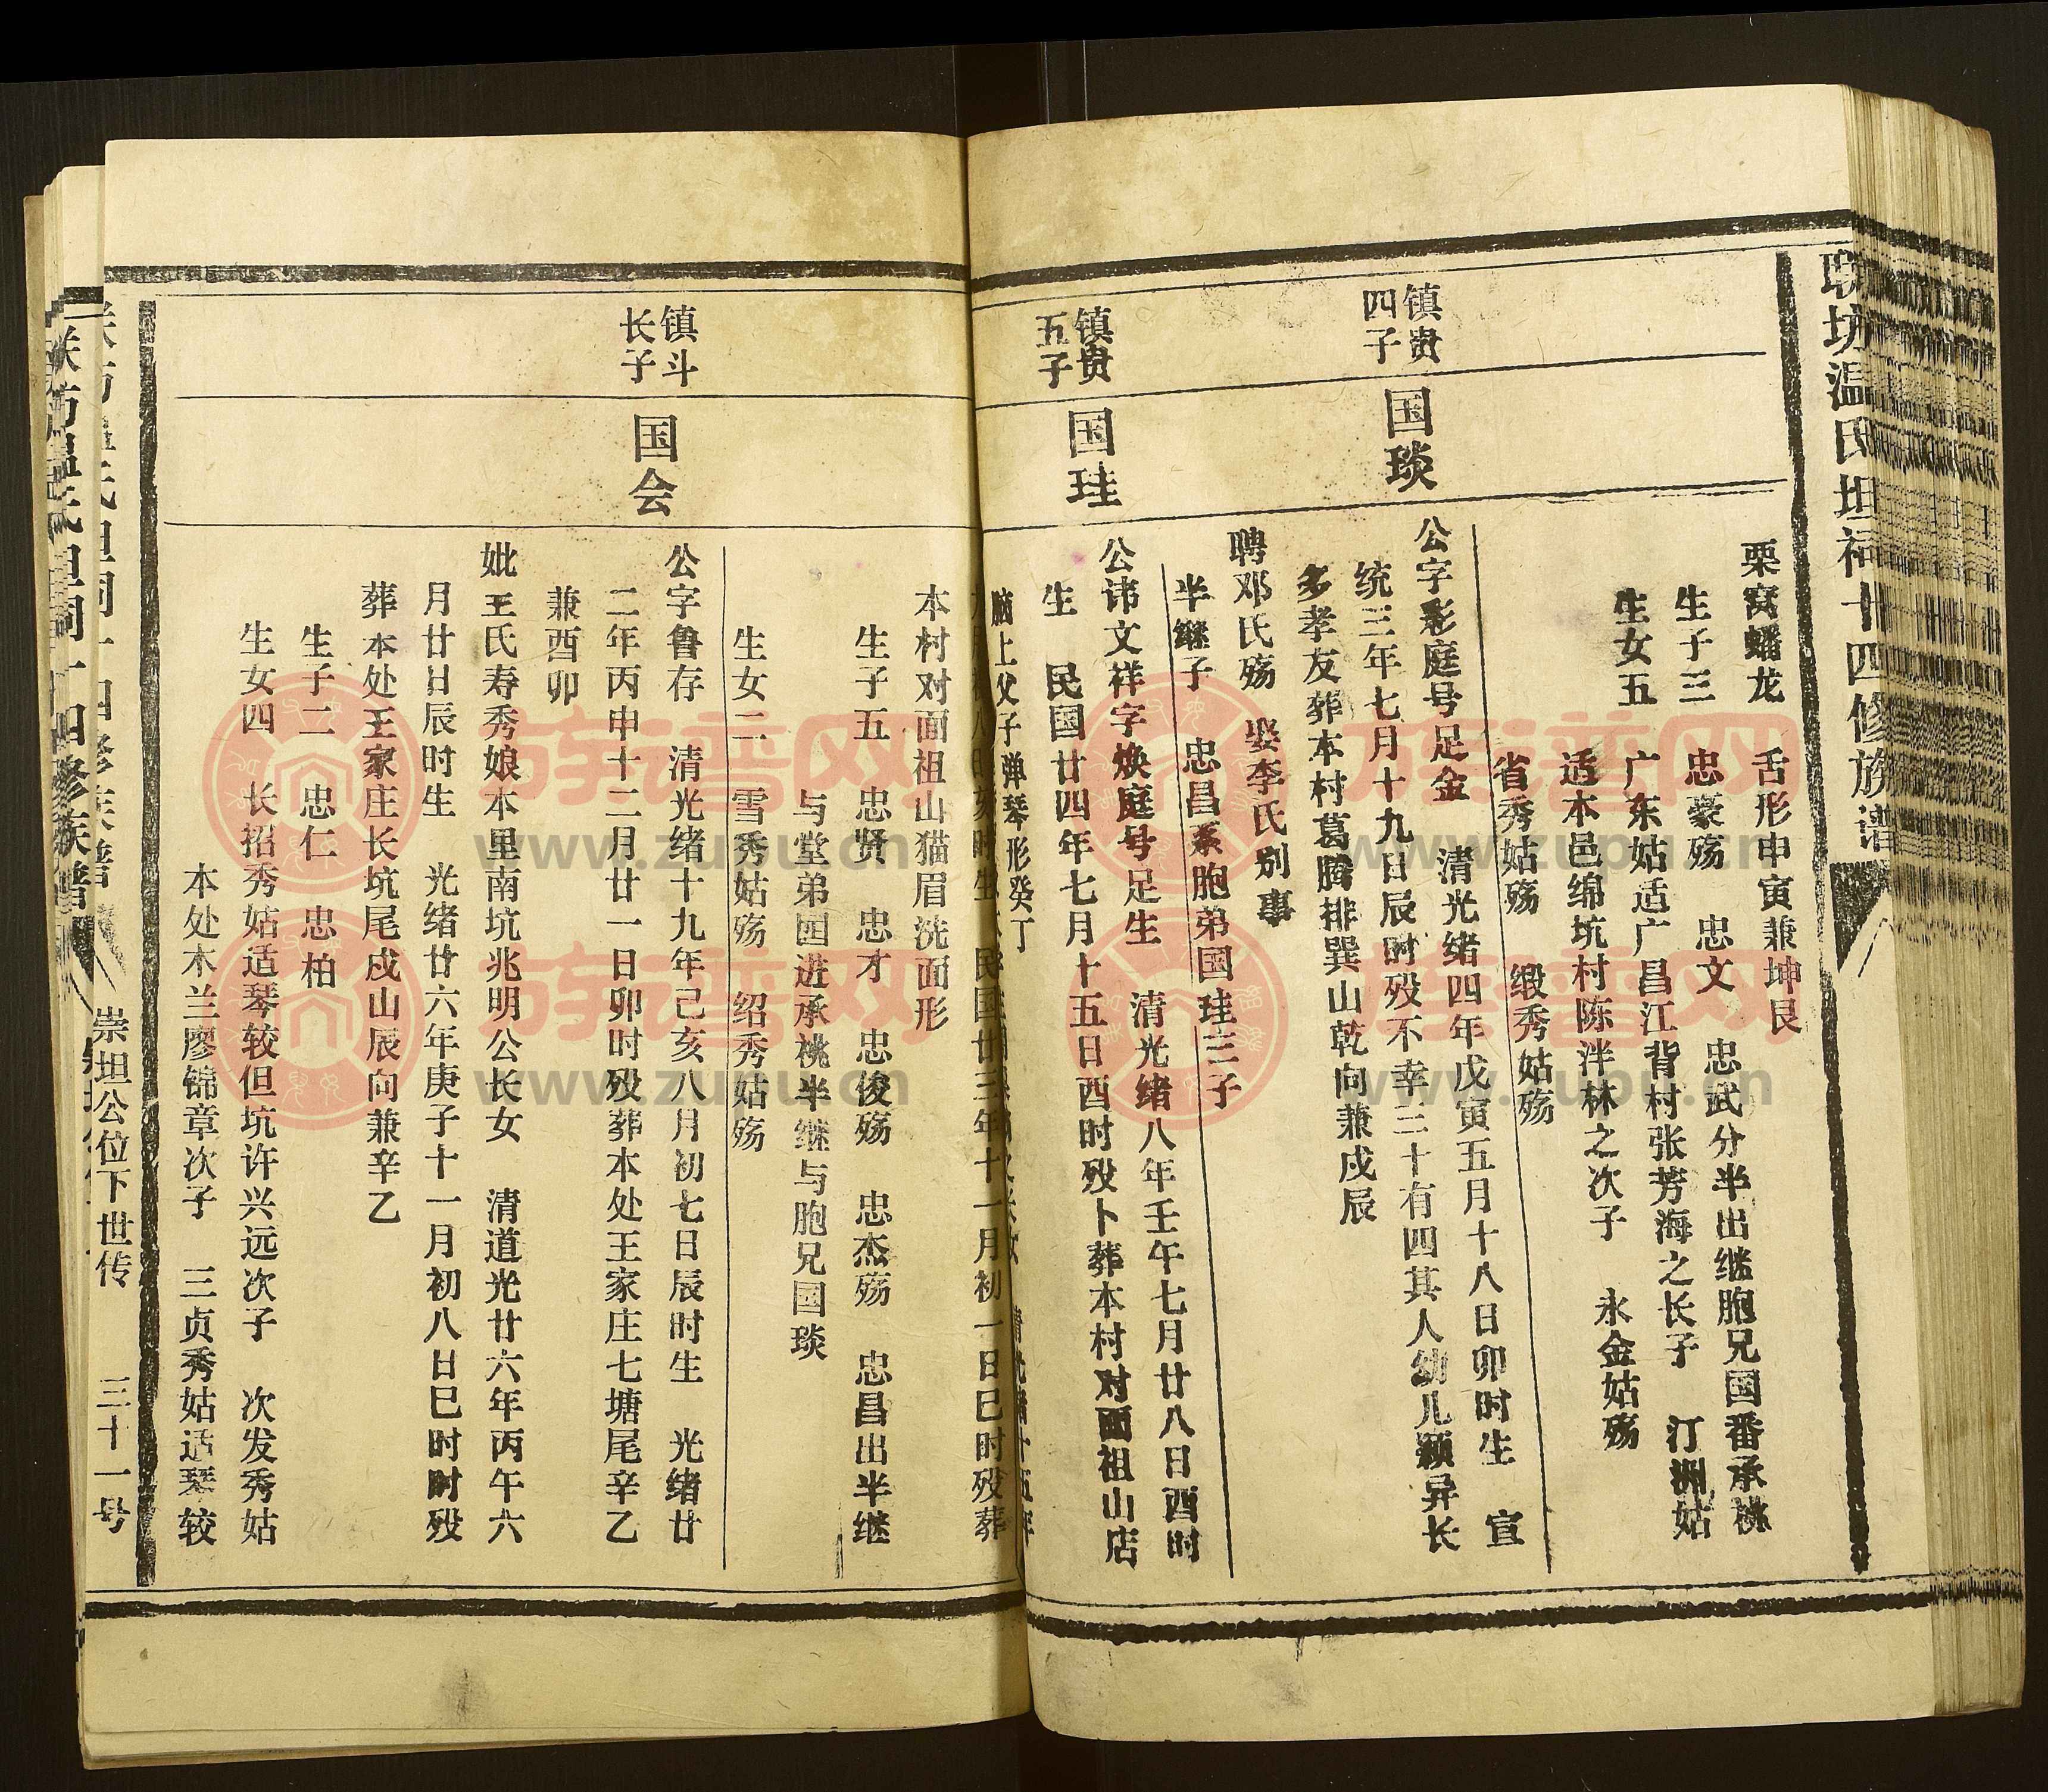 联坊温氏坦祠十四修族谱
栗窝蟠龙 舌形申寅兼坤艮
生子三 忠豪殇 忠文 忠武分半出继胞兄国番承桃
生女五 广东姑适广昌江背村张芳海之长子 汀洲姑
适本邑绵坑村陈泮林之次子 永金姑殇
省秀姑殇 缎秀姑殇
镇贵四子
国琰
公字彩庭号足金 清光绪四年戊寅五月十八日卯时生 宣
统三年七月十九日辰时殁不幸三十有四其人幼儿颖异长
多孝友葬本村葛腾排巽山乾向兼戌辰
聘邓氏殇 娶李氏别事
半继子 忠昌系胞弟国珪三子
镇贵五子
国珪
公讳文祥字焕庭号足生 清光绪八年壬午七月廿八日酉时
生 民国廿四年七月十五日酉时殁卜葬本村对面祖山店
脑上父子弹琴形癸丁
亥时生 民国廿三年十一月初一日巳时殁葬
本村对面祖山猫眉洗面形
生子五 忠贤 忠才 忠俊殇 忠杰殇 忠昌出半继
与堂弟国进承桃半继与胞兄国琰
生女二 雪秀姑殇 绍秀姑殇
镇斗长子
国会
公字鲁存 清光绪十九年己亥八月初七日辰时生 光绪廿
二年丙申十二月廿一日卯时殁葬本处王家庄七塘尾辛乙
兼酉卯
妣王氏寿秀娘本里南坑兆明公长女 清道光廿六年丙午六
月廿日辰时生 光绪廿六年庚子十一月初八日巳时时殁
葬本处王家庄长坑尾戌山辰向兼辛乙
生子二 忠仁 忠柏
生女四 长招秀姑适琴较但坑许兴远次子 次发秀姑
本处木兰廖锦章次子 三贞秀姑适琴较
崇坦公位下世传 三十一号